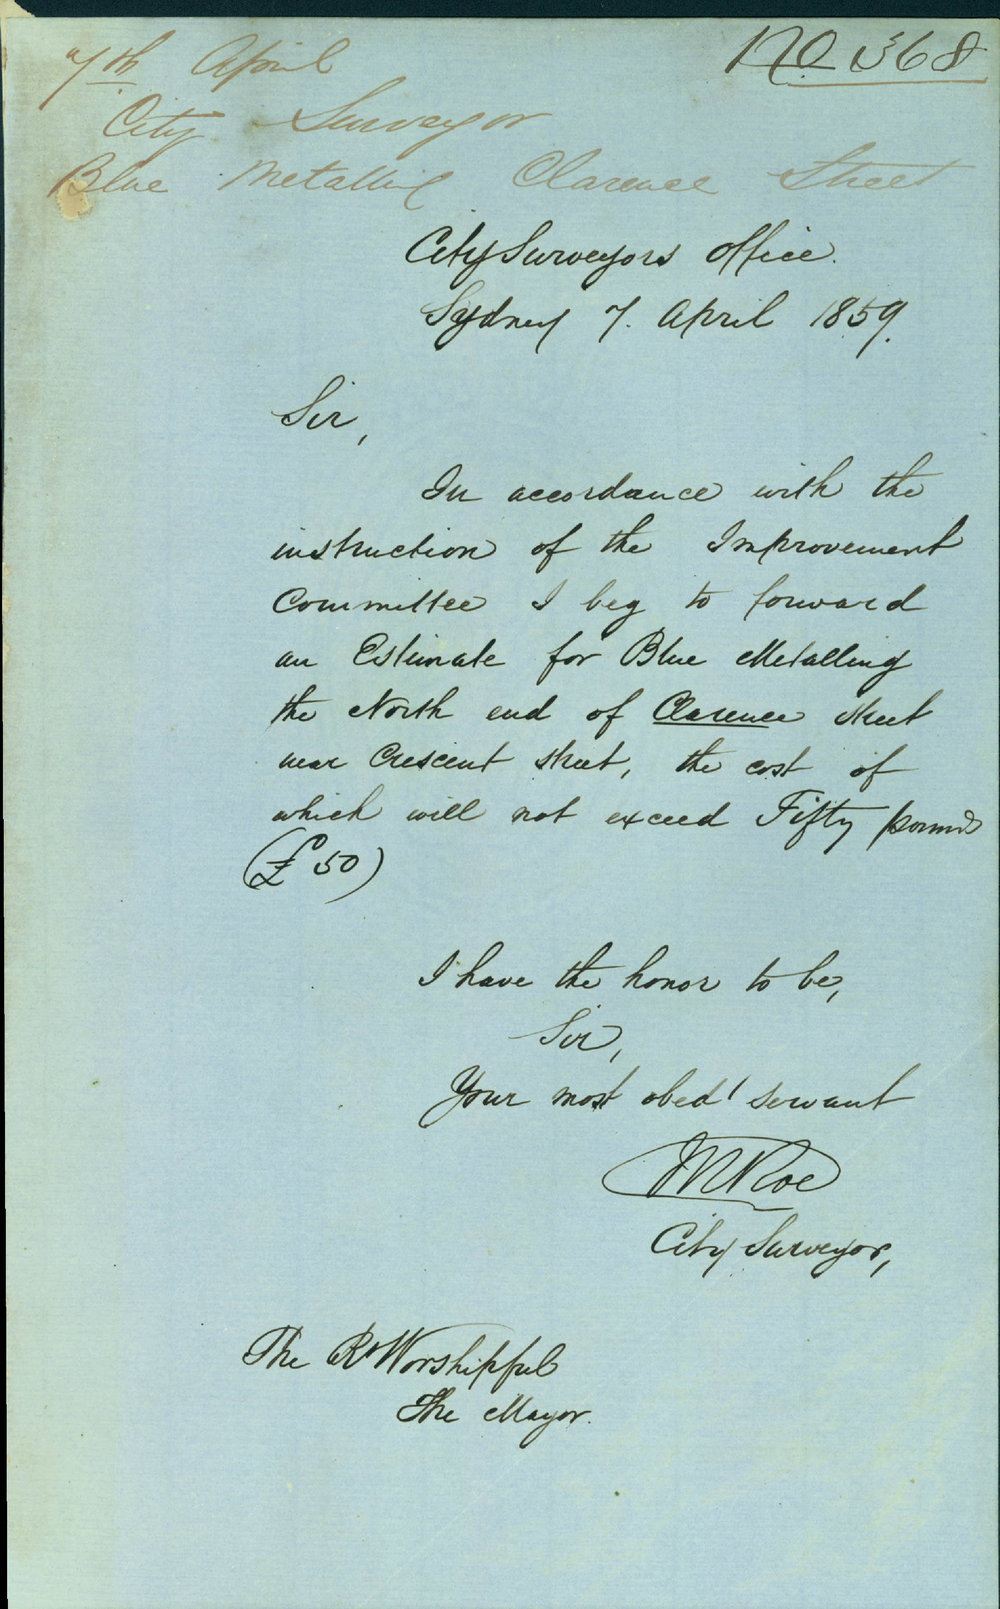 7th April
No 368
City Surveyor
Blue Metalling Clarence Street
City Surveyors Office.
Sydney 7. April 1859.
Sir,
In accordance with the
instruction of the Improvement
Committee I beg to forward
an Estimate for Blue Metalling
the North end of Clarence street
near Crescent street, the cost of
which will not exceed Fifty pounds
(£50)
I have the honor to be,
Sir,
Your most obedt servant
Roe
City Surveyor,
The Rt Worshipful
The Mayor.